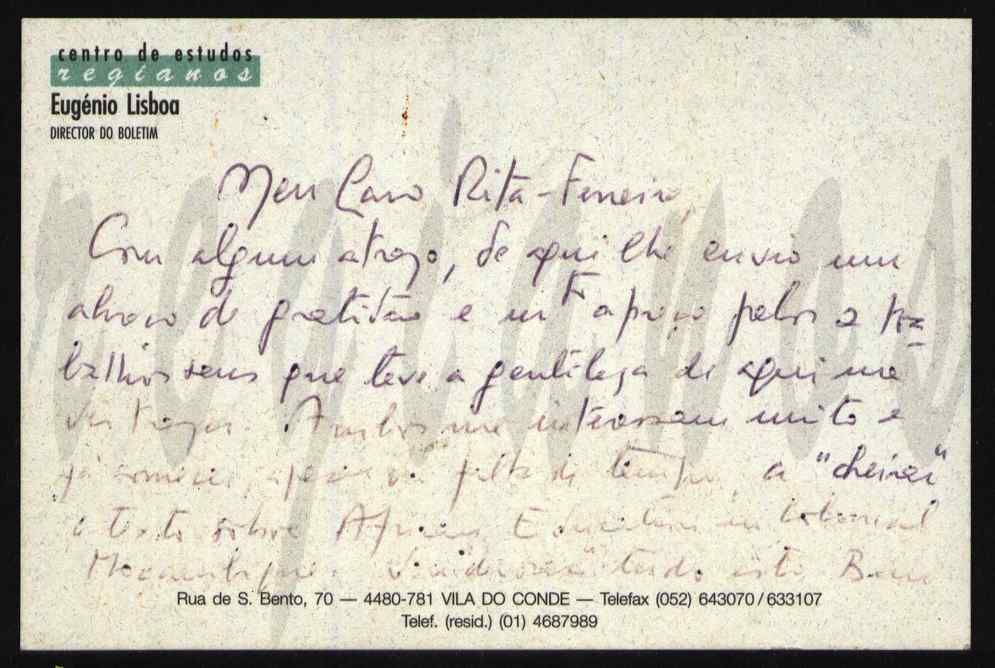 centro de estudos
regianos
Eugénio Lisboa
DIRECTOR DO BOLETIM
Meu Caro Rita-Ferreira,
Com algum atrazo, de aqui lhe envio um
abraço de gratidão e mto apreço pelos 2 tra
balhos seus que teve a gentileza de aqui me
vir trazer. Ambos me interessam muito e
já comecei, apesar da falta de tempo, a "cheirar"
o texto sobre African Education in Colonial
Moçambique. tudo isto. Bem
Rua de S. Bento, 70 — 4480-781 VILA DO CONDE — Telefax (052) 643070/633107
Telef. (resid.) (01) 4687989